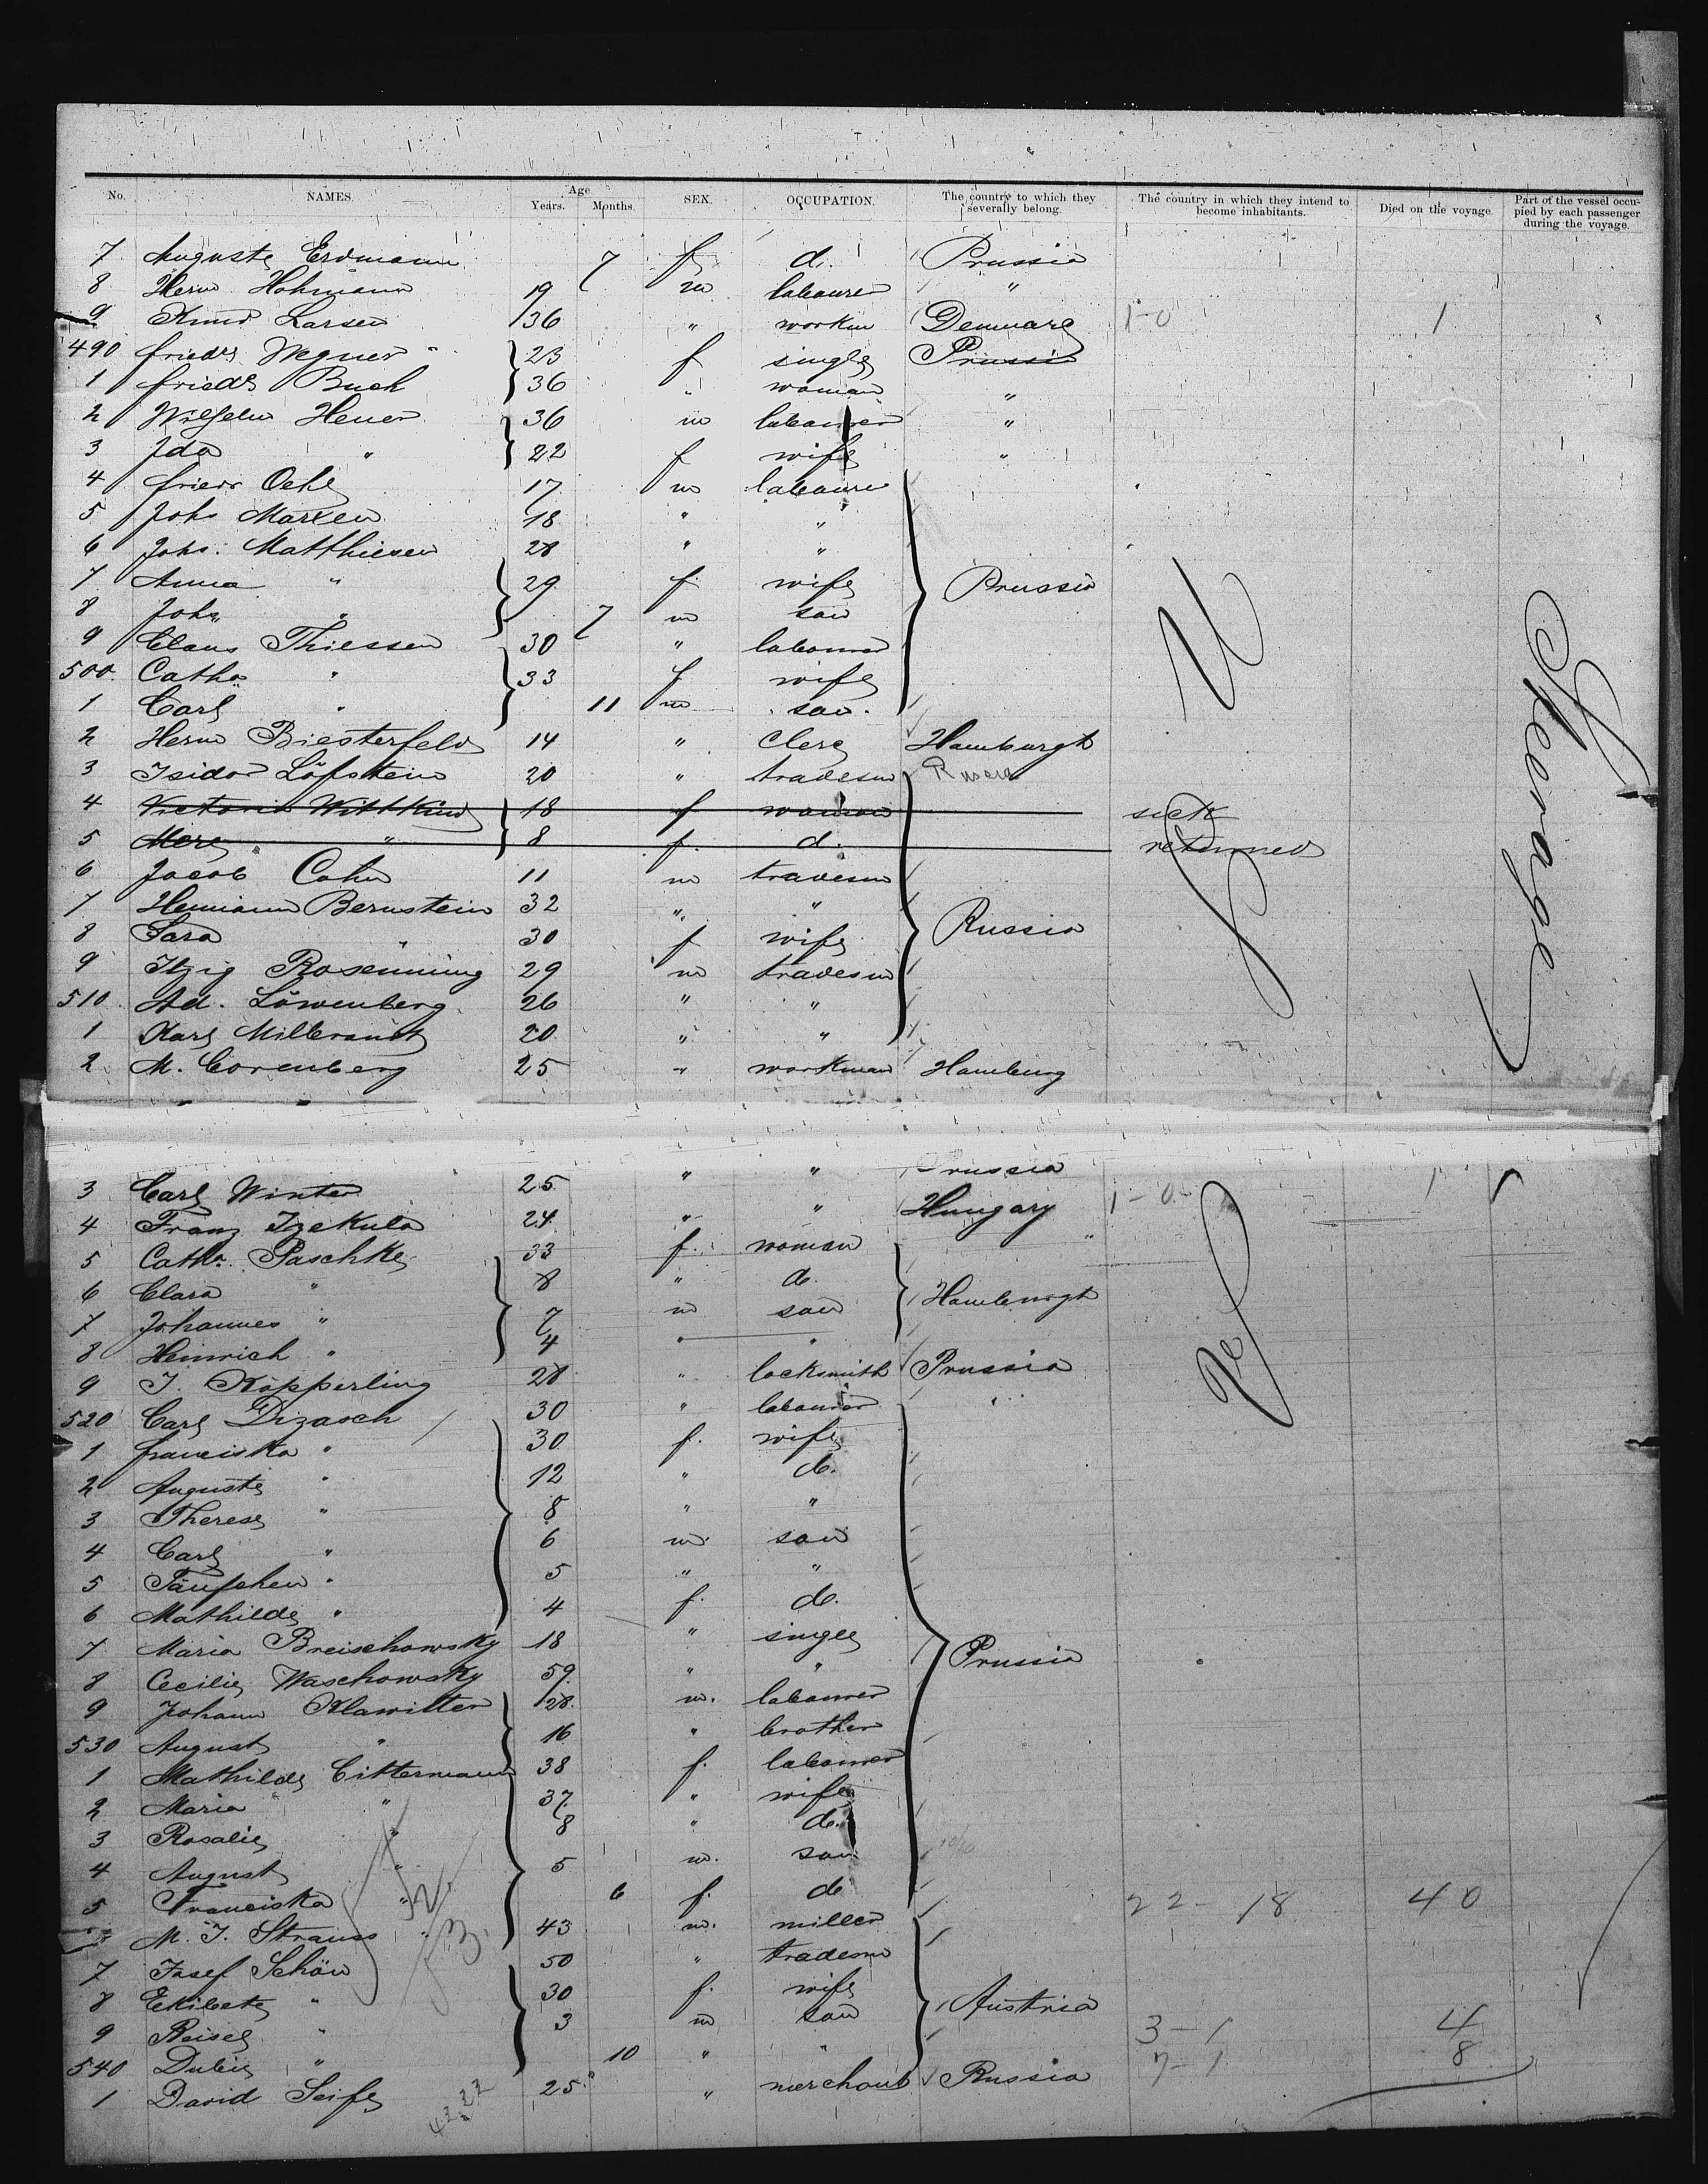 No. NAMES. Age. Years. Months. SEX. OCCUPATION. The country to which they severally belong. The country in which they intend to become inhabitants. Died on the voyage. Part of the vessel occupied by each passenger during the voyage.
7 Auguste Erdmann 7 f d. Prussia
8 Herm Hohmann 19 m labourer "
9 Knud Larsen 36 " workm Denmark 1-0 1
490 Friedr Wegner 23 f single Prussia
1 Friedr Buch 36 " woman "
2 Wilhelm Heuer 36 m labourer "
3 Ida " 22 f wife "
4 Friedr Oehl 17 m labourer
5 Johs Marxen 18 " "
6 Johs. Matthiesen 28 " "
7 Anna " 29 f. wife Prussia
8 Johs " 7 m son
9 Claus Thiessen 30 " labourer
500. Catha " 33 f wife
1 Carl " 11 m son.
2 Herm Biesterfeld 14 " Clerc Hamburgh
3 Isidor Löfstein 20 " tradesm Russia
4 Victoria Wittkind 18 f woman sick
5 " 8 f. d. returned
6 Jacob Cohn 11 m tradesm
7 Hermann Bernstein 32 " "
8 Sara " 30 f wife Russia
9 Itzig 29 m tradesm
510 Ad. Löwenberg 26 " "
1 20 " "
2 M. Corenberg 25 " workman Hamburg
U S of
Steerage
3 Carl Winter 25 " " Prussia
4 Franz 24 " " Hungary 1-0 1
5 Catha. Paschke 33 f. woman "
6 Clara " 8 " d. Hamburgh
7 Johannes " 7 m son
8 Heinrich " 4 " "
9 J. Köpperling 28 " locksmith Prussia
520 Carl Dizasch 30 " labourer "
1 Franciska " 30 f. wife
2 Auguste " 12 " d.
3 Therese " 8 " "
4 Carl " 6 m. son
5 " 5 " "
6 Mathilde " 4 f. d.
7 Maria Breischowsky 18 " single Prussia
8 Cecilie Waschowsky 59 " "
9 Johann Klawitter 28. m. labourer
530 August " 16 " brother
1 Mathilde Cittermann 38 f. labourer
2 Maria " 37 " wife
3 Rosalie " 8 " d.
4 August " 5 m. son
5 Franciska " 6 f. d. 22-18 40
M. J. Strauss 43 m. miller
7 Josef Schön 50 " tradesm
8 " 30 f. wife Austria
9 Reisel " 3 m son 3-1 4
540 " 10 " " 7-1 8
1 David Seife 25 " merchant Russia